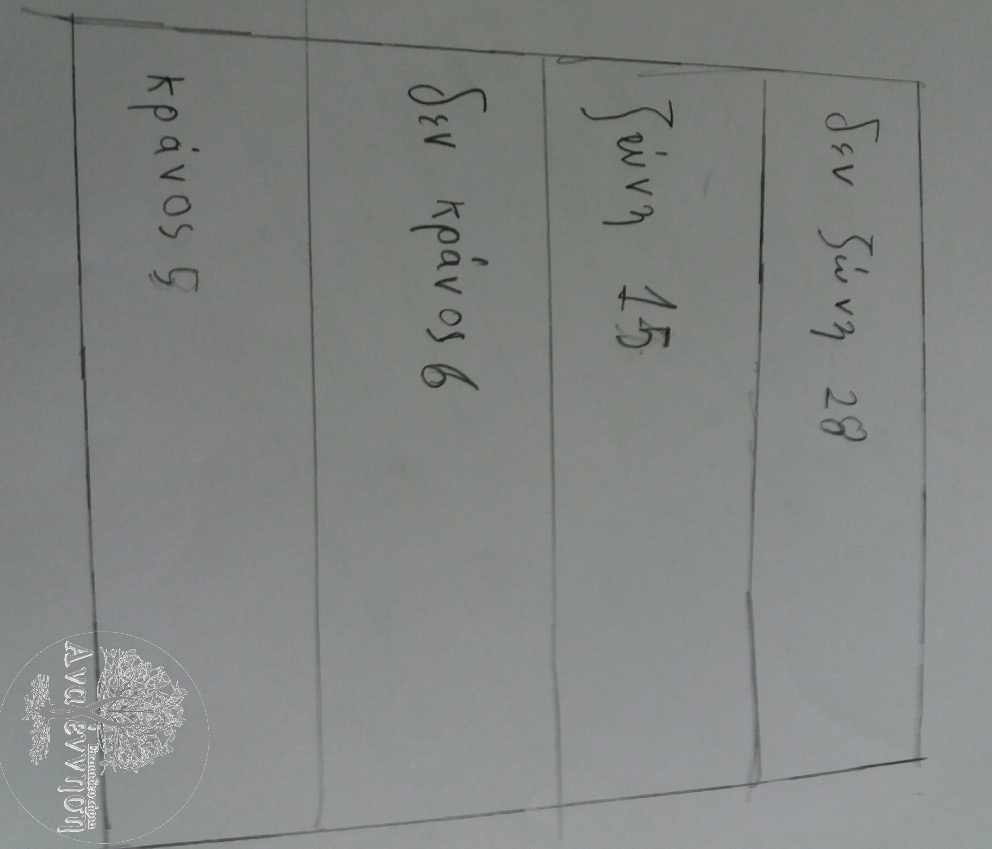 δεν ζώνη 28
ζώνη 15
δεν κράνος 6
κράνος 5
Αναγέννηση